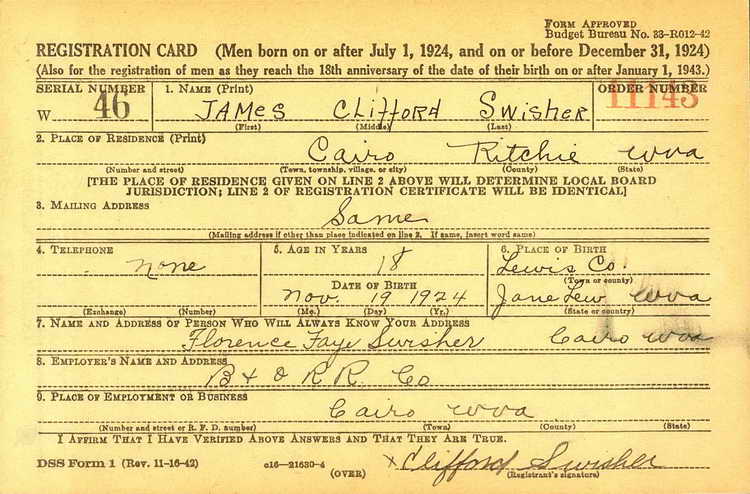 FORM APPROVED
Budget Bureau No. 33-R012-42
REGISTRATION CARD (Men born on or after July 1, 1924, and on or before December 31, 1924)
(Also for the registration of men as they reach the 18th anniversary of the date of their birth on or after January 1, 1943.)
SERIAL NUMBER 1. NAME (Print) ORDER NUMBER
W 46 JAMES Clifford Swisher 11143
(First) (Middle) (Last)
2. PLACE OF RESIDENCE (Print)
Cairo Ritchie WVa
(Number and street) (Town, township, village, or city) (County) (State)
[THE PLACE OF RESIDENCE GIVEN ON LINE 2 ABOVE WILL DETERMINE LOCAL BOARD
JURISDICTION; LINE 2 OF REGISTRATION CERTIFICATE WILL BE IDENTICAL]
3. MAILING ADDRESS
Same
(Mailing address if other than place indicated on line 2. If same, insert word same)
4. TELEPHONE 5. AGE IN YEARS 6. PLACE OF BIRTH
None 18 Lewis Co.
(Town or county)
DATE OF BIRTH
Nov. 19 1924 Jane Lew WVa
(Exchange) (Number) (Mo.) (Day) (Yr.) (State or country)
7. NAME AND ADDRESS OF PERSON WHO WILL ALWAYS KNOW YOUR ADDRESS
Florence Faye Swisher Cairo WVa
8. EMPLOYER'S NAME AND ADDRESS
B & O R R. Co
9. PLACE OF EMPLOYMENT OR BUSINESS
Cairo WVa
(Number and street or R. F. D. number) (Town) (County) (State)
I AFFIRM THAT I HAVE VERIFIED ABOVE ANSWERS AND THAT THEY ARE TRUE.
DSS Form 1 (Rev. 11-16-42) c16-21630-4 X Clifford Swisher
(OVER) (Registrant's signature)